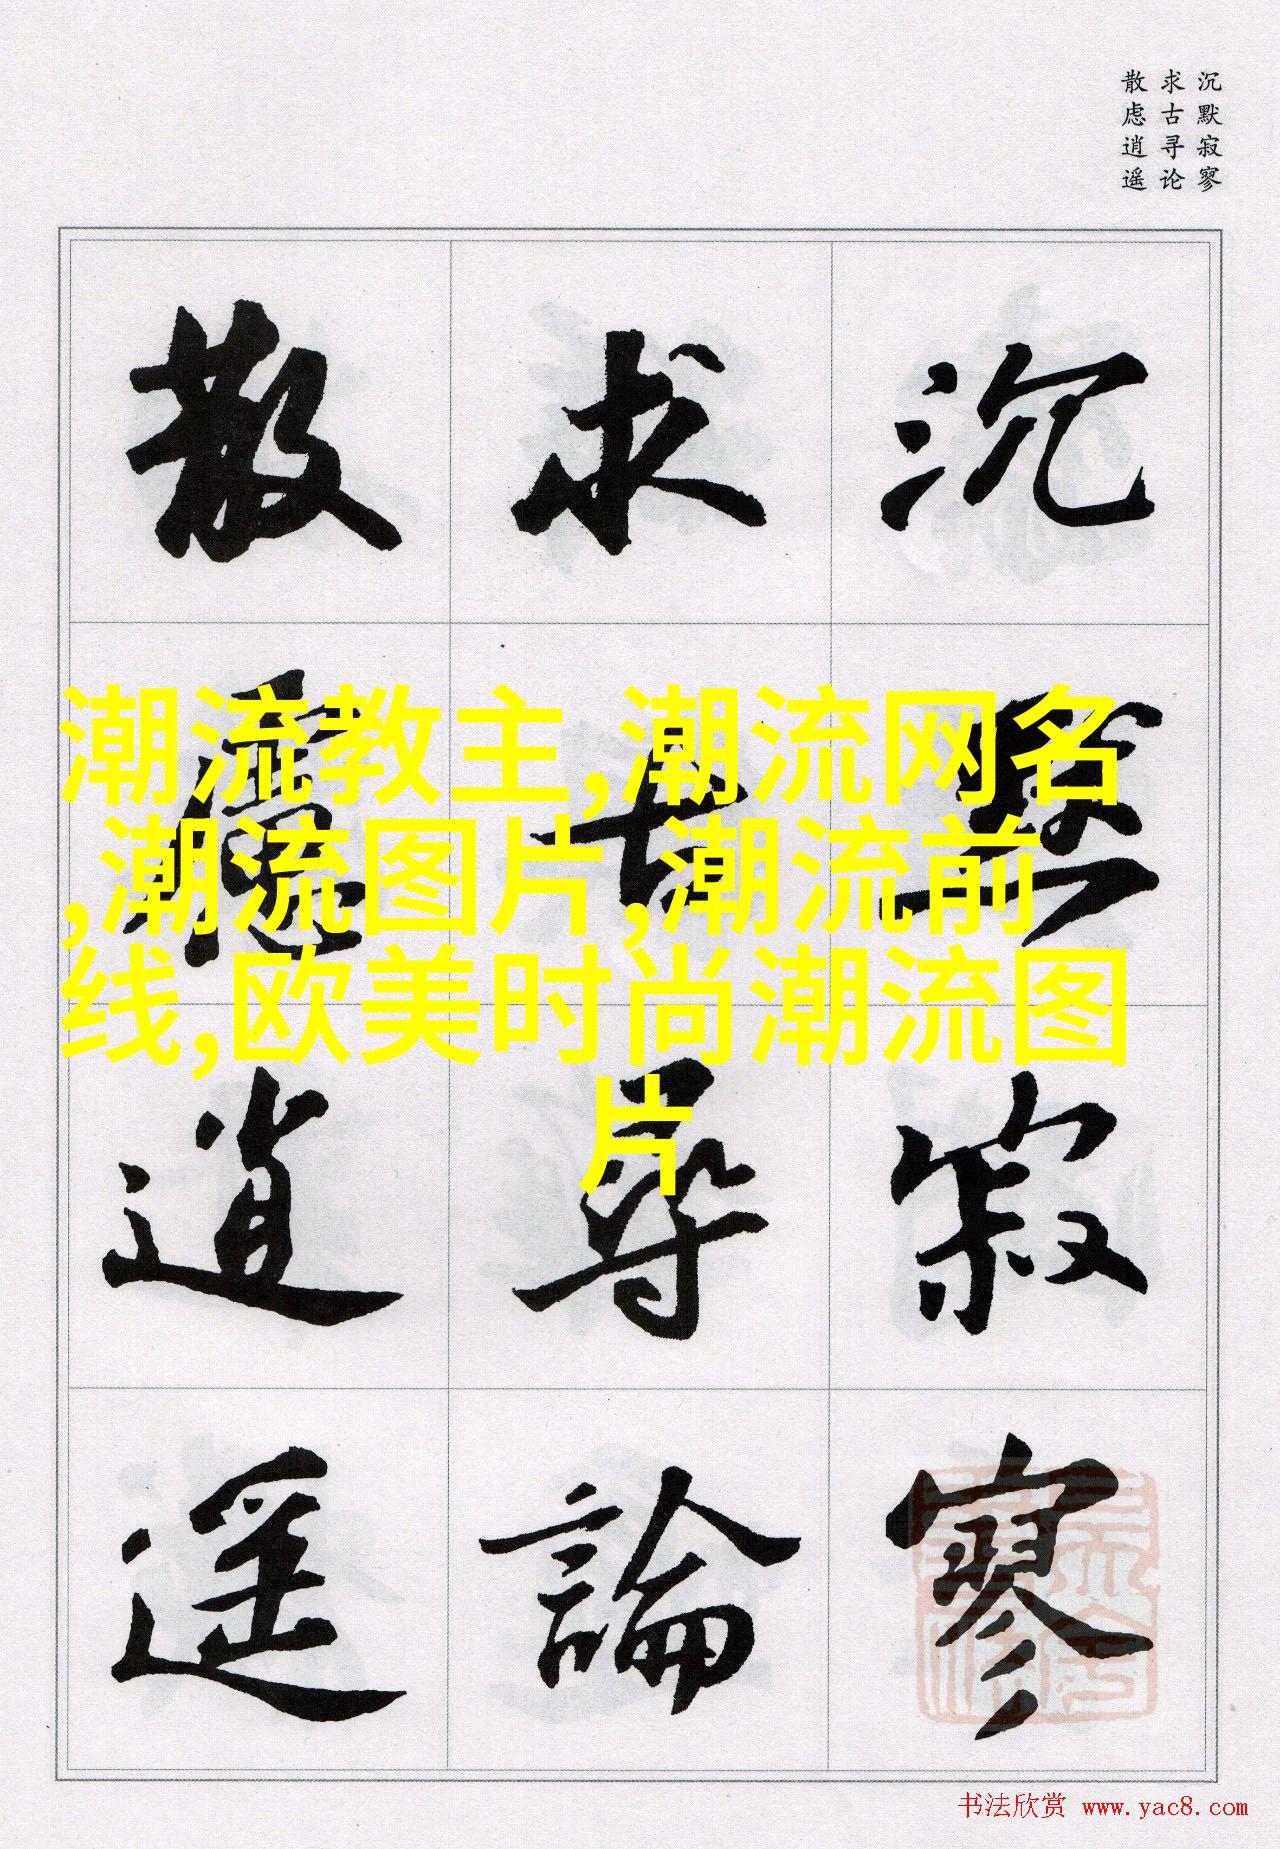 沉默寂寥
求古寻论
散虑逍遥
沉默寂寥
求古尋論
散慮逍遥
潮流教主,潮流网名
,潮流图片,潮流前
线,欧美时尚潮流图
片
书法欣赏 www.yac8.com